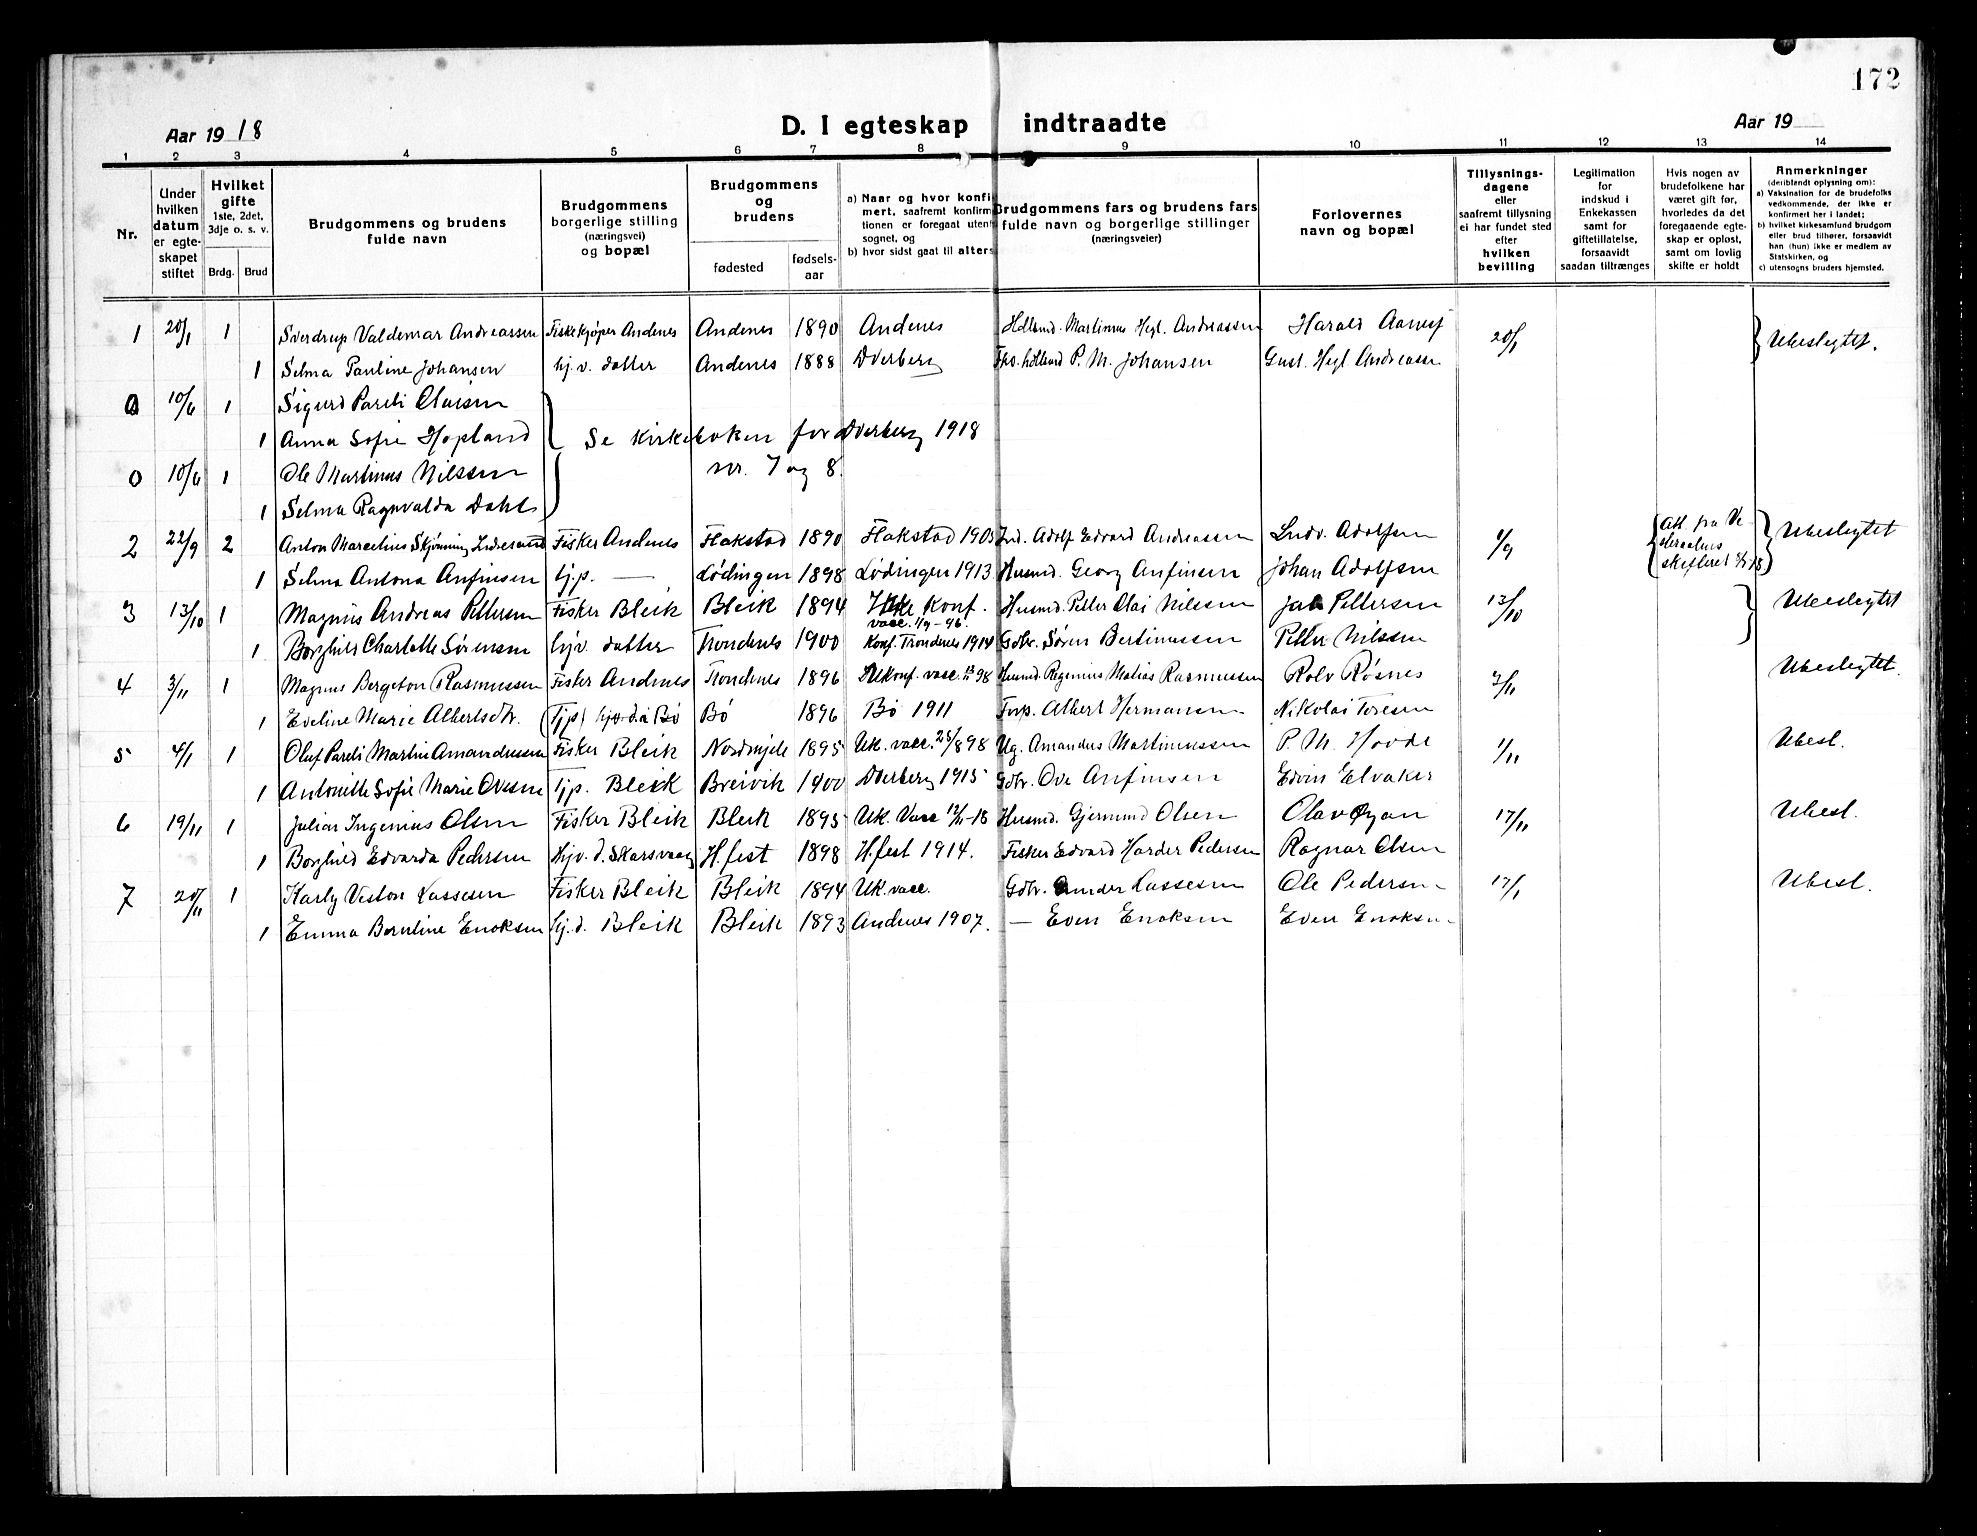 172
Aar 1918
D. I egteskap indtraadte
Aar 19
1 2 3 4 5 6 7 8 9 10 11 12 13 14
Nr.
Under hvilken datum er egteskapet stiftet
Hvilket gifte 1ste, 2det, 3dje o. s. v.
Brdg. Brud
Brudgommens og brudens fulde navn
Brudgommens borgerlige stilling (næringsvei) og bopæl
Brudgommens og brudens
fødested fødselsaar
a) Naar og hvor konfirmert, saafremt konfirmationen er foregaat utenfor sognet, og
b) hvor sidst gaat til alters
Brudgommens fars og brudens fars fulde navn og borgerlige stillinger (næringsveier)
Forlovernes navn og bopæl
Tillysningsdagene eller saafremt tillysning ei har fundet sted efter hvilken bevilling
Legitimation for indskud i Enkekassen samt for giftetillatelse, forsaavidt saadan tiltrænges
Hvis nogen av brudefolkene har været gift før, hvorledes da det foregaaende egteskap er opløst, samt om lovlig skifte er holdt
Anmerkninger (deriblandt oplysning om):
a) Vaksination for de brudefolks vedkommende, der ikke er konfirmert her i landet;
b) hvilket kirkesamfund brudgom eller brud tilhører, forsaavidt han (hun) ikke er medlem av Statskirken, og
c) utensogns bruders hjemsted.
1 20/1 1 Sverdrup Valdemar Andreassen Fiskekjøper Andenes Andenes 1890 Andenes Martinus Hegl. Andreassen Harald Aanes 20/1 } Ubeslegtet.
1 Selma Pauline Johansen hj. v. datter Andenes 1888 Dverberg P. M. Johansen Gust. Hegl Andreassen
0 10/6 1 Sigurd Pareli Olaisen
1 Anna Sofie Hopland } Se kirkeboken for Dverberg 1918
0 10/6 1 Ole Martinus Nilssen } nr. 7 og 8.
1 Selma Ragnvalda Dahl
2 22/9 2 Anton Marcelius Skjønning Fisker Andenes Flakstad 1890 Flakstad 1905 Ind. Adolf Edvard Andreassen Ludv. Adolfsen 1/9 { Att. fra Skifteret } Ubeslegtet
1 Selma Antona Anfinsen tj.p. — Lødingen 1898 Lødingen 1913. Husmd. Georg Anfinsen Johan Adolfsen
3 13/10 1 Magnus Andreas Pettersen Fisker Bleik Bleik 1894 Ikke Konf. vacc. Husmd. Petter Olai Nilssen Pettersen 13/10 } Ubeslegtet
1 Borghild Charlotte Sørensen hjv. datter Trondenes 1900 Konf. Trondenes 1914 Gdbr. Søren Bertinussen Petter Nilssen
4 3/11 1 Magnus Bergeton Rasmussen Fisker Andenes Trondenes 1896 Ukonf. vacc. 98 Husmd. Regenius Matias Rasmussen Rolv Røsnes 3/11 Ubeslegtet.
1 Eveline Marie Albertsdtr. (tjp) hjv. d. i Bø Bø 1896 Bø 1911 Forp. Albert Hermansen Nikolai Toresen
5 4/1 1 Oluf Pareli Martin Amandussen Fisker Bleik Nordmjele 1895 Uk. vacc. 25/8 98 Ug. Amandus Martinussen P. M. Hovde 1/11 Ubesl.
1 Antonette Sofie Marie Ovesen tjp. Bleik Breivik 1900 Dverberg 1915 Gdbr. Ove Anfinsen Edvin Elvaker
6 19/11 1 Julian Ingenius Olsen Fisker Bleik Bleik 1895 Uk. Vacc 12/11-18 Husmd. Gjermund Olsen Olav Øyan 17/11 Ubesl.
1 Borghild Edvarda Pedersen Hjv. d. Skarsvaag H.fest 1898 H.fest 1914. Fisker Edvard Harder Pedersen Ragnar Olsen
7 20/11 1 Karly Veston Lassesen Fisker Bleik Bleik 1894 Uk. vacc. Gdbr. Lassesen Ole Pedersen 17/1 Ubesl.
1 Emma Berntine Enoksen hj. d. Bleik Bleik 1893 Andenes 1907. — Even Enoksen Even Enoksen